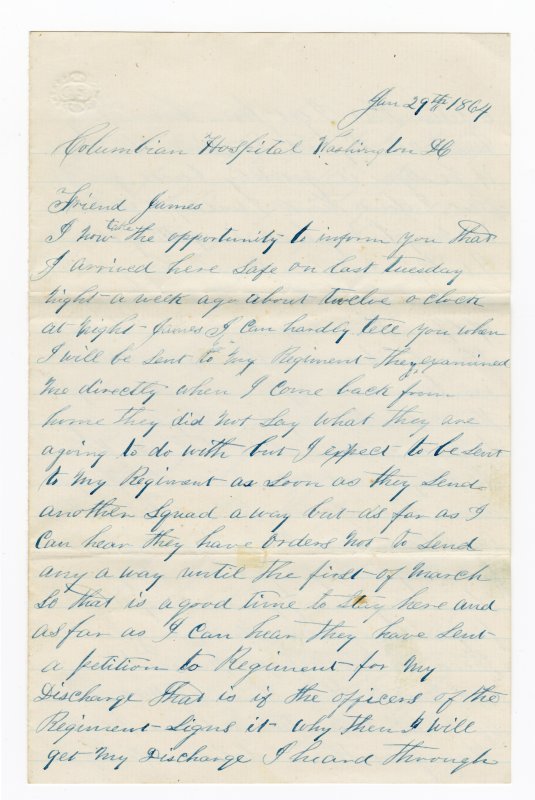 Jan 29th 1864
Columbian Hospital Washington DC
Friend James
I now take the opportunity to inform you That
I arrived here safe on last tuesday
Night a week ago about twelve o clock
at Night James I can hardly tell you when
I will be sent to My Regiment They examined
Me directly when I come back from
home they did not say what they are
agoing to do with but I expect to be sent
to My Regiment as soon as they send
another squad away but as far as I
can hear they have orders Not to send
any a way until the first of March
so that is a good time to stay here and
as far as I can hear they have sent
a petition to Regiment for My
Discharge That is if the officers of the
Regiment signs it why then I will
get My Discharge I heard through